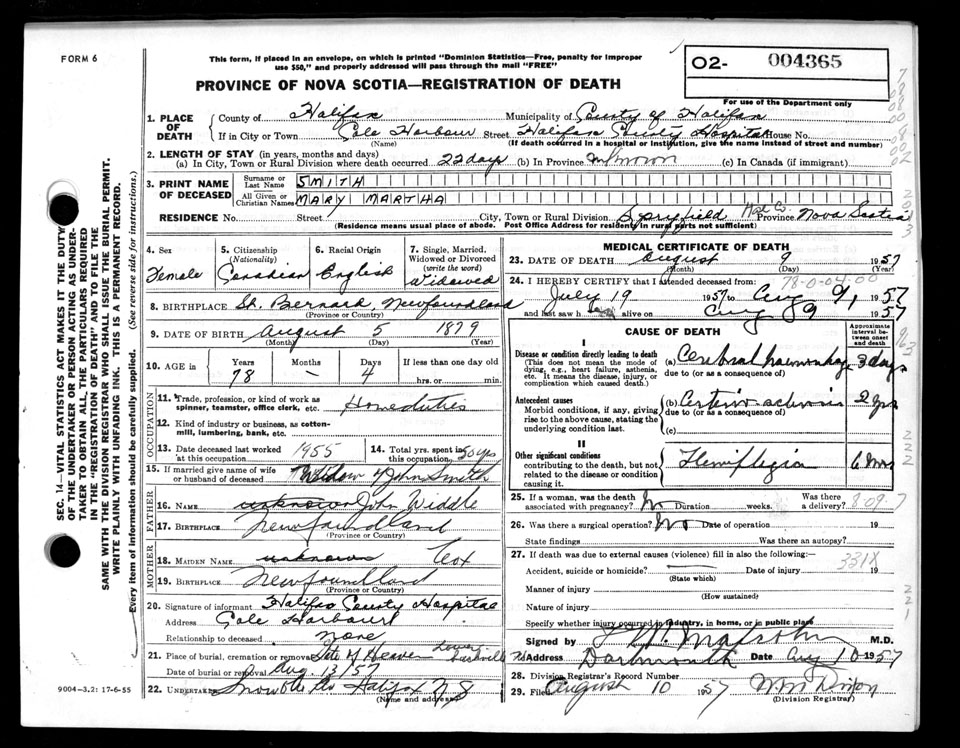 FORM 6
This form, if placed in an envelope, on which is printed "Dominion Statistics—Free, penalty for improper
use $50," and properly addressed will pass through the mail "FREE"
PROVINCE OF NOVA SCOTIA—REGISTRATION OF DEATH
O2- 004365
For use of the Department only
1. PLACE OF DEATH
County of Halifax Municipality of County of Halifax
If in City or Town Cole Harbour Street Halifax County Hospital House No.
(Name) (If death occurred in a hospital or institution, give the name instead of street and number)
2. LENGTH OF STAY (in years, months and days)
(a) In City, Town or Rural Division where death occurred 22 days (b) In Province unknown (c) In Canada (if immigrant)
3. PRINT NAME OF DECEASED
Surname or Last Name SMITH
All Given or Christian Names MARY MARTHA
RESIDENCE No. Street City, Town or Rural Division Spryfield Hfx Co. Province Nova Scotia
(Residence means usual place of abode. Post Office Address for residents in rural parts not sufficient)
4. Sex Female
5. Citizenship (Nationality) Canadian
6. Racial Origin English
7. Single, Married, Widowed or Divorced (write the word) Widowed
8. BIRTHPLACE St. Bernard, Newfoundland
(Province or Country)
9. DATE OF BIRTH August 5 1879
(Month) (Day) (Year)
10. AGE in Years Months Days If less than one day old
78 – 4 hrs. or min.
OCCUPATION
11. Trade, profession, or kind of work as
spinner, teamster, office clerk, etc. Homeduties
12. Kind of industry or business, as cotton-
mill, lumbering, bank, etc.
13. Date deceased last worked at this occupation 1955
14. Total yrs. spent in this occupation 50 yrs
15. If married give name of wife
or husband of deceased Widow of John Smith
FATHER
16. NAME unknown John Widdle
17. BIRTHPLACE Newfoundland
(Province or Country)
MOTHER
18. MAIDEN NAME unknown Cox
19. BIRTHPLACE Newfoundland
(Province or Country)
20. Signature of informant Halifax County Hospital
Address Cole Harbour
Relationship to deceased none
21. Place of burial, cremation or removal Gate of Heaven Lower Sackville
Date of burial or removal Aug. 13/57
22. Undertaker Snow & Co Halifax N S
(Name and address)
MEDICAL CERTIFICATE OF DEATH
23. DATE OF DEATH August 9 1957
(Month) (Day) (Year)
24. I HEREBY CERTIFY that I attended deceased from:
78-0-04-00
July 19 1957 to Aug 9, 1957
and last saw h er alive on Aug 9 1957
CAUSE OF DEATH
Approximate interval between onset and death
I
Disease or condition directly leading to death
(This does not mean the mode of dying, e.g., heart failure, asthenia, etc. It means the disease, injury, or complication which caused death.)
(a) Cerebral haemorrhage 3 days
due to (or as a consequence of)
Antecedent causes
Morbid conditions, if any, giving rise to the above cause, stating the underlying condition last.
(b) Arterio-sclerosis 2 yrs
due to (or as a consequence of)
(c)
II
Other significant conditions
contributing to the death, but not related to the disease or condition causing it.
Hemiplegia 6 mos
25. If a woman, was the death associated with pregnancy? No Duration weeks. Was there a delivery? 8-09-7
26. Was there a surgical operation? No Date of operation 19
State findings Was there an autopsy?
27. If death was due to external causes (violence) fill in also the following:
331X
Accident, suicide or homicide? Date of injury 19
(State which)
Manner of injury
(How sustained)
Nature of injury
Specify whether injury occurred in industry, in home, or in public place
Signed by M.D.
Address Dartmouth Date Aug 10 1957
28. Division Registrar's Record Number
29. Filed August 10 1957
(Division Registrar)
SEC. 14—VITAL STATISTICS ACT MAKES IT THE DUTY
OF THE UNDERTAKER OR PERSON ACTING AS UNDER-
TAKER TO OBTAIN ALL THE PARTICULARS REQUIRED
IN THE "REGISTRATION OF DEATH" AND TO FILE THE
SAME WITH THE DIVISION REGISTRAR WHO SHALL ISSUE THE BURIAL PERMIT.
WRITE PLAINLY WITH UNFADING INK. THIS IS A PERMANENT RECORD.
Every item of information should be carefully supplied. (See reverse side for instructions.)
9004-3.2: 17-6-55